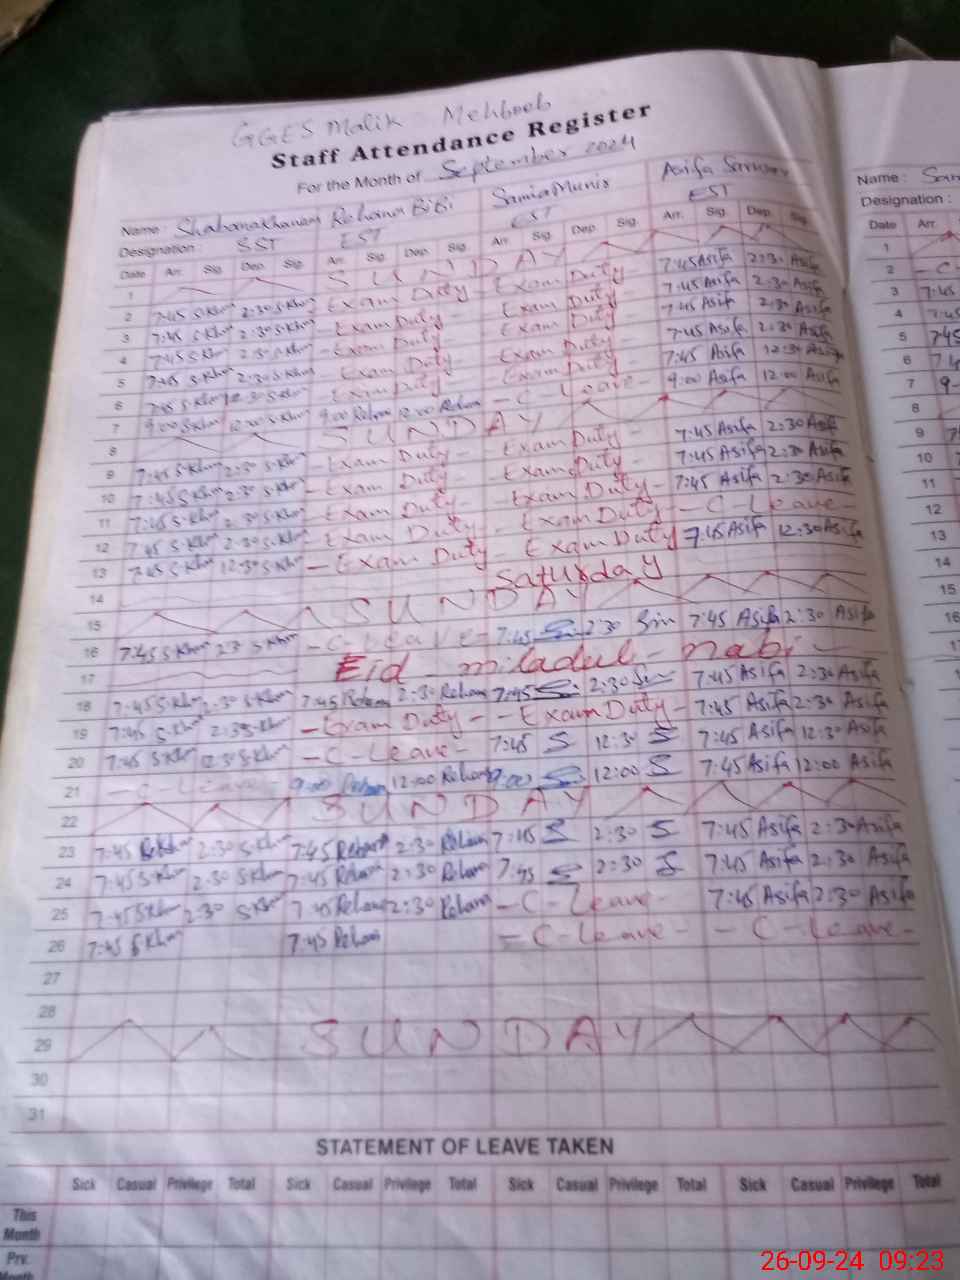 GGES Malik Mehboob
Staff Attendance Register
For the Month of September 2024
Name: Shabanakhanam Rehana BiBi Samia Munir Asifa Sarwar
Designation: SST EST EST EST
Date Arr. Sig. Dep. Sig. Arr. Sig. Dep. Sig. Arr. Sig. Dep. Sig. Arr. Sig. Dep. Sig.
1 SUNDAY
2 7:45 S.Khan 2:30 S.Khan - Exam Duty - Exam Duty - 7:45 Asifa 2:30 Asifa
3 7:45 S.Khan 2:30 S.Khan - Exam Duty - Exam Duty - 7:45 Asifa 2:30 Asifa
4 7:45 S.Khan 2:30 S.Khan - Exam Duty - Exam Duty - 7:45 Asifa 2:30 Asifa
5 7:45 S.Khan 2:30 S.Khan Exam Duty - Exam Duty - 7:45 Asifa 2:30 Asifa
6 7:45 S.Khan 12:30 S.Khan Exam Duty - Exam Duty - 7:45 Asifa 12:30 Asifa
7 9:00 S.Khan 12:00 S.Khan 9:00 Rehana 12:00 Rehana - C - Leave - 9:00 Asifa 12:00 Asifa
8 SUNDAY
9 7:45 S.Khan 2:30 S.Khan - Exam Duty - Exam Duty - 7:45 Asifa 2:30 Asifa
10 7:45 S.Khan 2:30 S.Khan - Exam Duty - Exam Duty - 7:45 Asifa 2:30 Asifa
11 7:45 S.Khan 2:30 S.Khan - Exam Duty - Exam Duty - 7:45 Asifa 2:30 Asifa
12 7:45 S.Khan 2:30 S.Khan - Exam Duty - Exam Duty - C - Leave -
13 7:45 S.Khan 12:30 S.Khan - Exam Duty - Exam Duty 7:45 Asifa 12:30 Asifa
14 Saturday
15 SUNDAY
16 7:45 S.Khan 2:30 S.Khan - C - Leave - 7:45 2:30 Sin 7:45 Asifa 2:30 Asifa
17 Eid miladul - nabi
18 7:45 S.Khan 2:30 S.Khan 7:45 Rehana 2:30 Rehana 7:45 2:30 7:45 Asifa 2:30 Asifa
19 7:45 S.Khan 2:30 S.Khan - Exam Duty - - Exam Duty - 7:45 Asifa 2:30 Asifa
20 7:45 S.Khan 12:30 S.Khan - C - Leave - 7:45 S 12:30 S 7:45 Asifa 12:30 Asifa
21 - C - Leave - 9:00 Rehana 12:00 Rehana 9:00 12:00 S 7:45 Asifa 12:00 Asifa
22 SUNDAY
23 7:45 S.Khan 2:30 S.Khan 7:45 Rehana 2:30 Rehana 7:45 S 2:30 S 7:45 Asifa 2:30 Asifa
24 7:45 S.Khan 2:30 S.Khan 7:45 Rehana 2:30 Rehana 7:45 S 2:30 S 7:45 Asifa 2:30 Asifa
25 7:45 S.Khan 2:30 S.Khan 7:45 Rehana 2:30 Rehana - C - Leave - 7:45 Asifa 2:30 Asifa
26 7:45 S.Khan 7:45 Rehana - C - Leave - - C - Leave -
27
28
29 SUNDAY
30
31
STATEMENT OF LEAVE TAKEN
Sick Casual Privilege Total Sick Casual Privilege Total Sick Casual Privilege Total Sick Casual Privilege Total
This Month
Prv. Month
Name:
Designation:
Date Arr.
1
2 - C -
3 7:45
4 7:45
5 7:45
6
7 9-
8
9
10
11
12
13
14
15
16
26-09-24 09:23